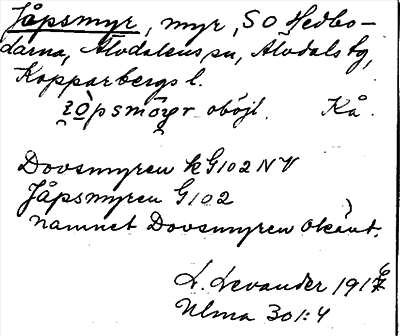 Jåpsmyr, myr, SO Hedbo-
darna, Älvdalens sn, Älvdals tg,
Kopparbergs l.
oböjl. Kå.
Dovsmyren kG102 NV
Jåpsmyren G102
namnet Dovsmyren okänt.
L. Levander 1916
Ulma 301:4